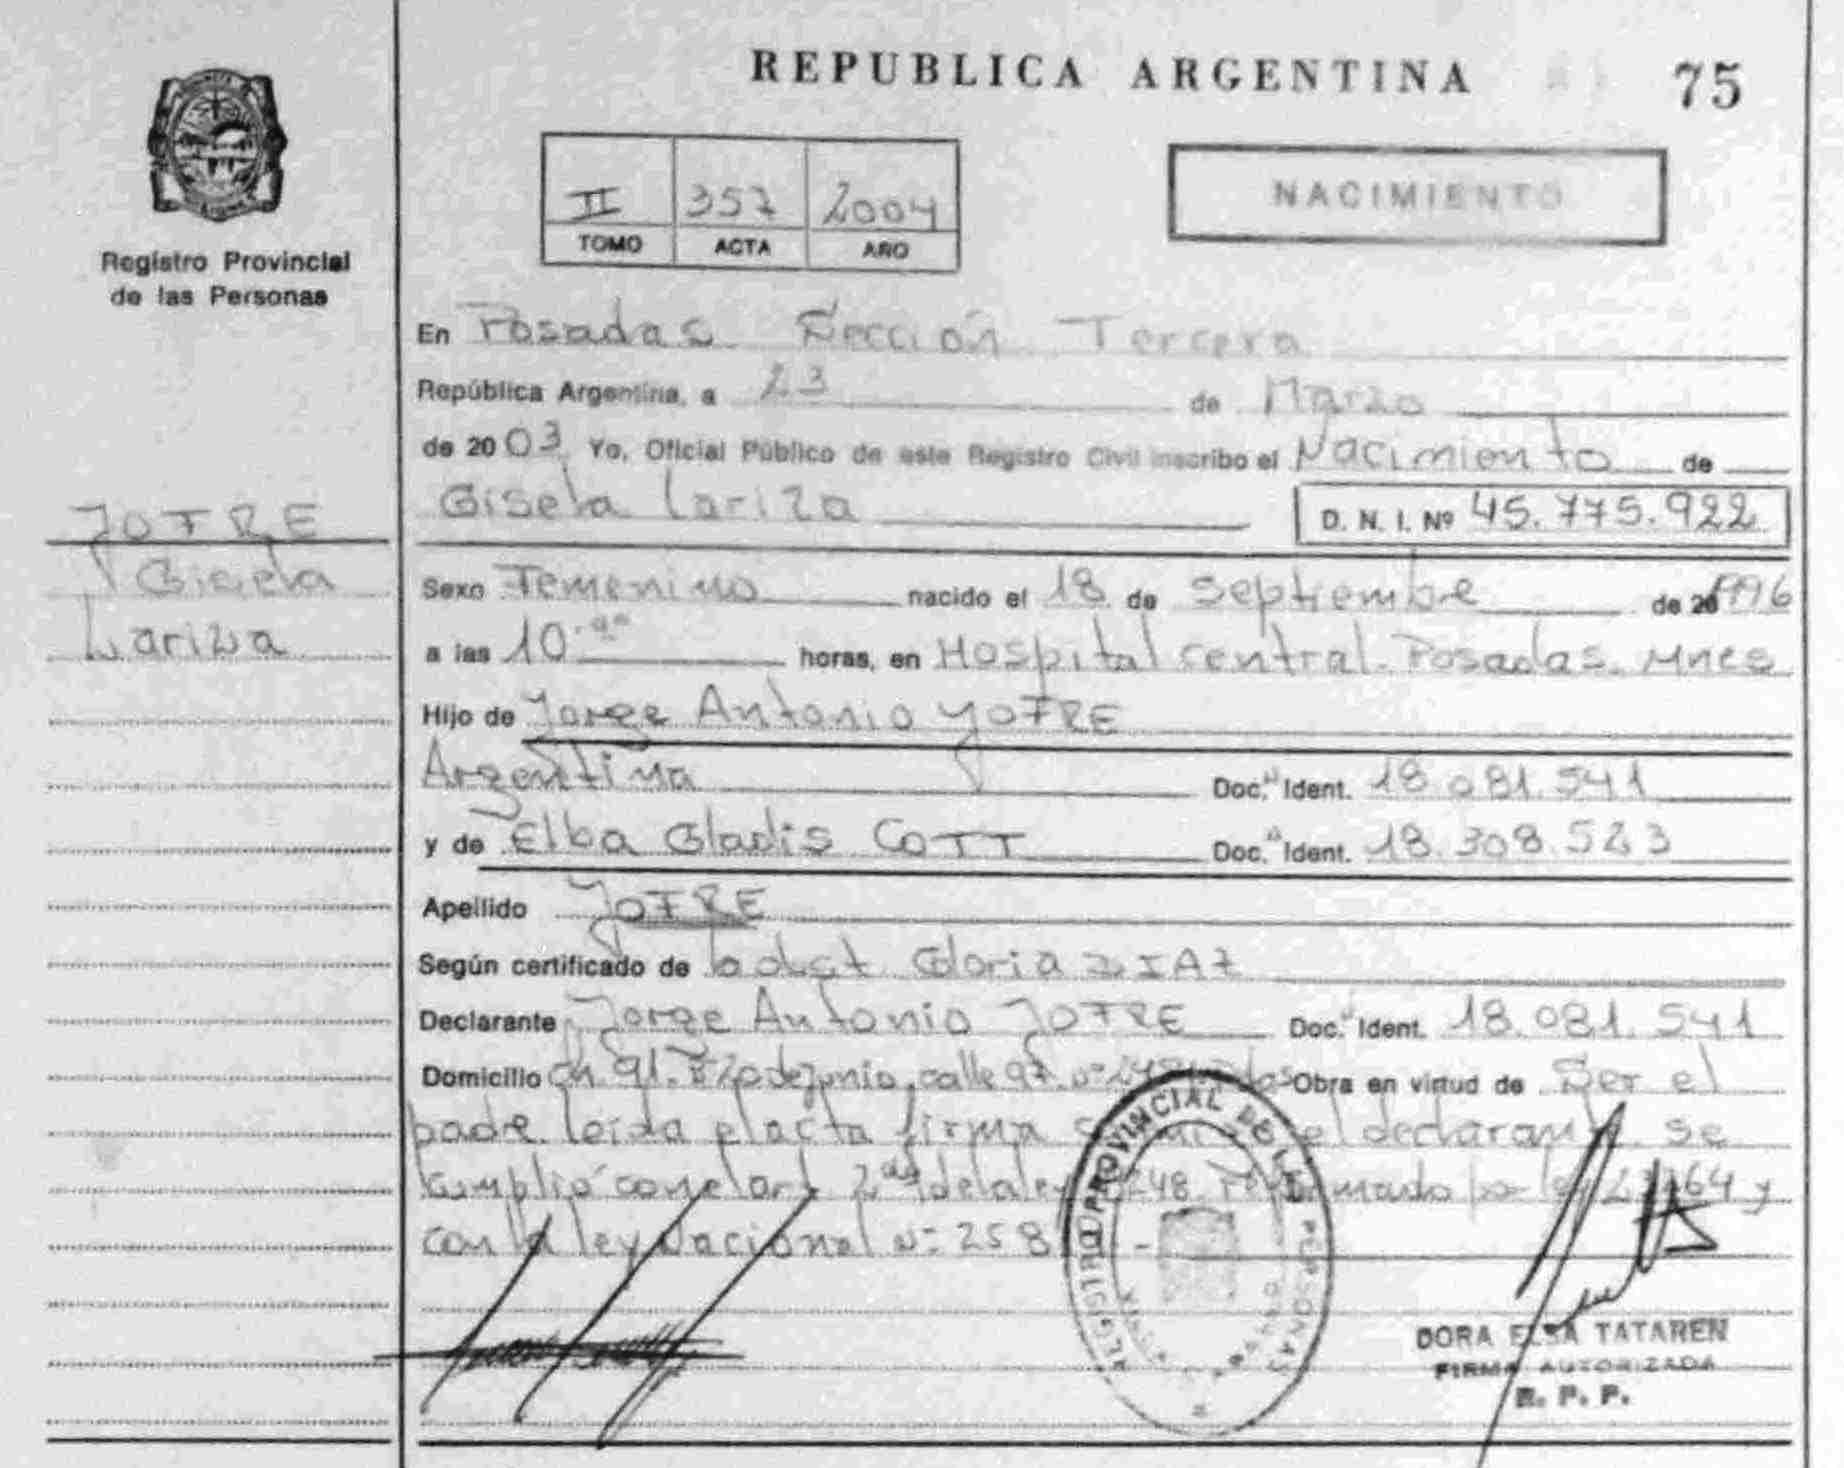 REPUBLICA ARGENTINA 75
II 357 2004
TOMO ACTA AÑO
NACIMIENTO
Registro Provincial
de las Personas
En Posadas Sección Tercera
República Argentina, a 23 de Marzo
de 2003 Yo, Oficial Público de este Registro Civil inscribo el Nacimiento de
Gisela Lariza D. N. I. Nº 45.775.922
JOFRE
Gisela
Lariza
Sexo Femenino nacido el 18 de Septiembre de 1996
a las 10 horas, en Hospital central. Posadas. Mnes
Hijo de Jorge Antonio YOFRE
Argentina Doc. Ident. 18.081.541
y de Elba Gladis COTT Doc. Ident. 18.308.523
Apellido JOFRE
Según certificado de Gloria DIAZ
Declarante Jorge Antonio JOFRE Doc. Ident. 18.081.541
Domicilio Ch 91. 20 de Junio, calle 97 Obra en virtud de Ser el
padre leida el acta firma el declarante se
cumplió con el art 2 de la ley 248 por ley y
con la ley Nacional Nº 258
REGISTRO PROVINCIAL DE LAS PERSONAS
DORA ELSA TATAREN
FIRMA AUTORIZADA
R. P. P.